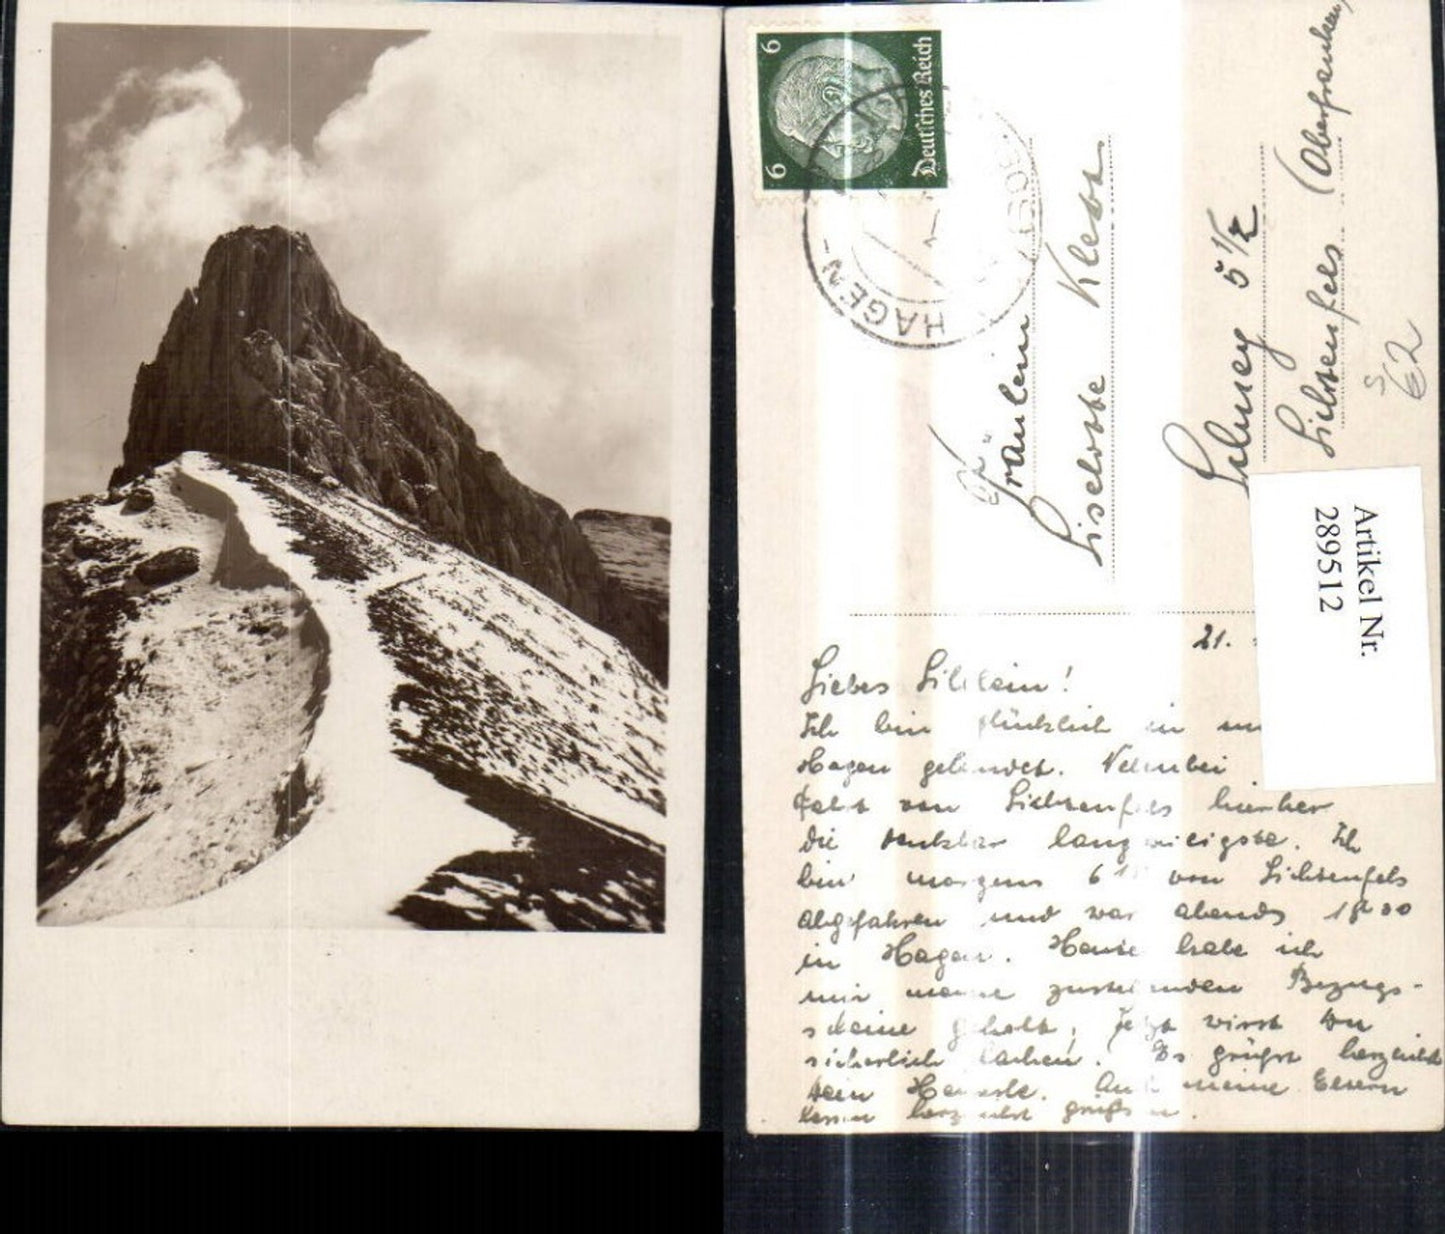 6
6
Deutsches Reich
HAGEN -
Fräulein
Lieselotte Klebs
Schney 5 1/2
Lichtenfels (Oberfranken)
S
62
Artikel Nr.
289512
21.
Liebes Lililein!
Ich bin glücklich in
Hagen gelandet. Nebenbei
Fahrt von Lichtenfels hierher
die denkbar langweiligste. Ich
bin morgens 6 von Lichtenfels
abgefahren und war abends 18 00
in Hagen. Heute habe ich
mir meine zustehenden Bezugs-
scheine geholt, Jetzt wirst Du
sicherlich lachen. Es grüßt herzlichst
Dein. Auch meine Eltern
lassen herzlichst grüßen.